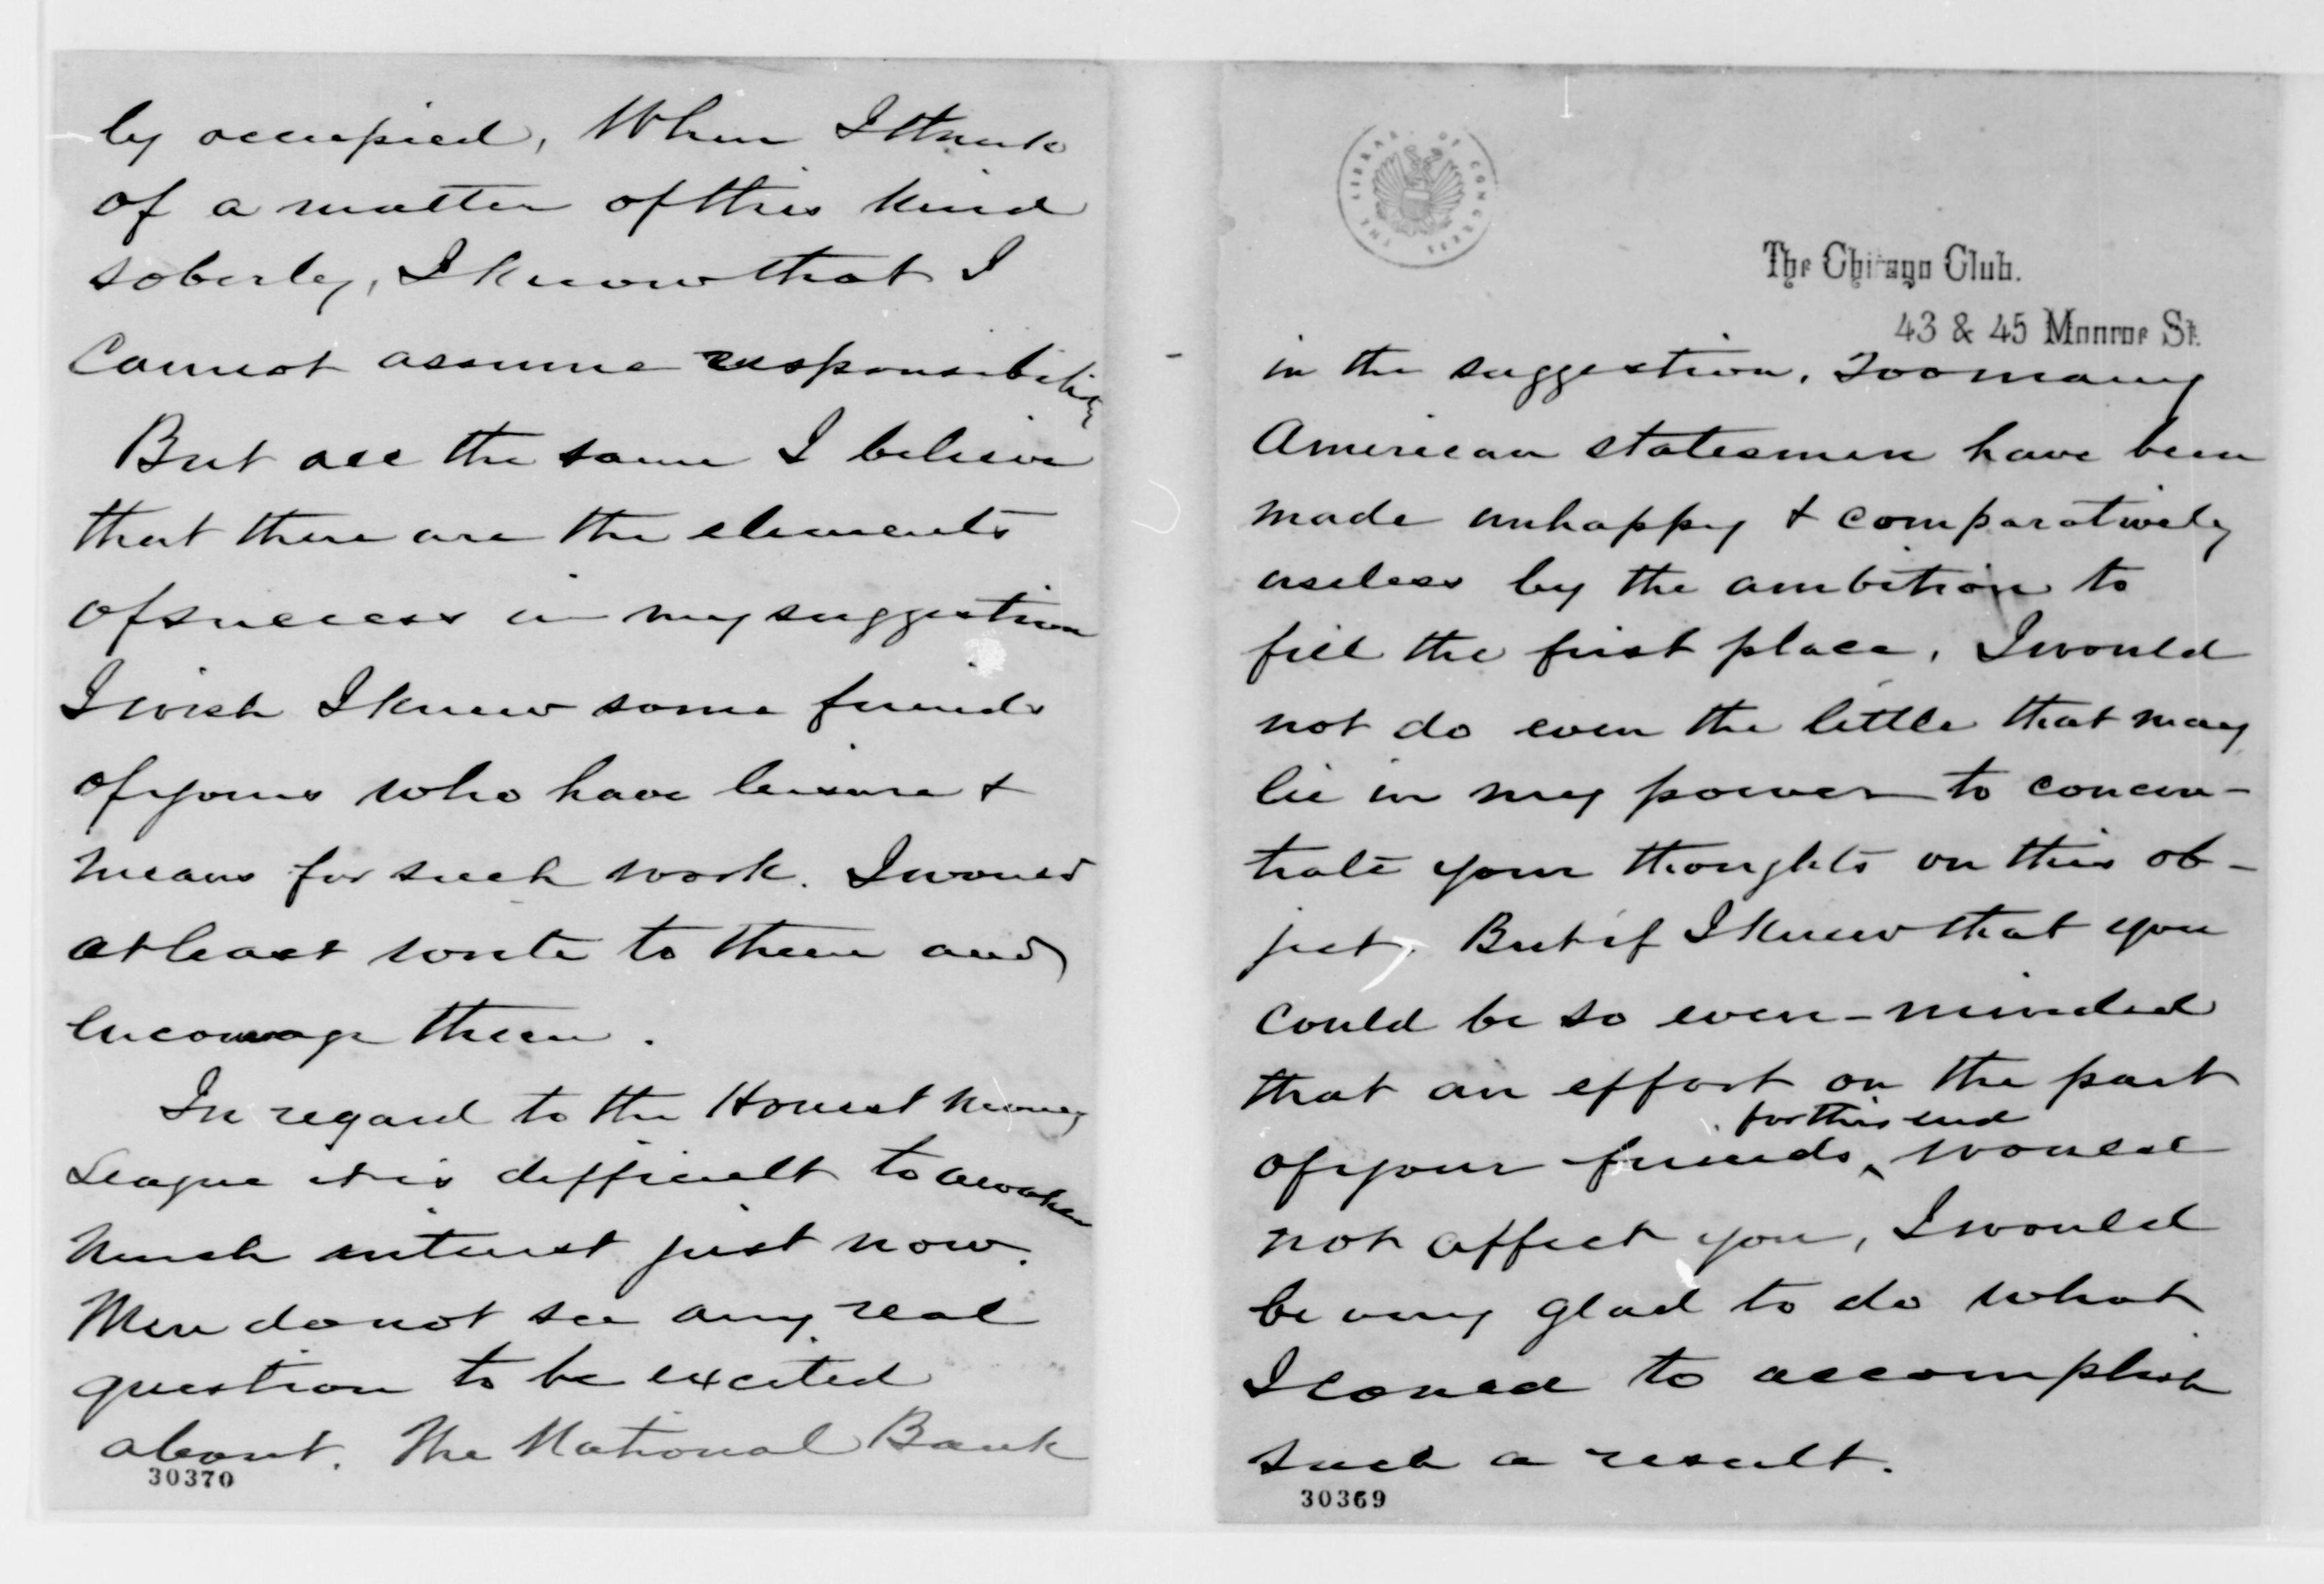 ly occupied, When I think
of a matter of this kind
soberly, I know that I
Cannot assume responsibility
But all the same I believe
that there are the elements
of success in my suggestion
I wish I knew some friends
of yours who have leisure &
means for such work. I would
at least write to them and
encourage them.
In regard to the Honest Money
League it is difficult to awaken
much interest just now.
Men do not see any real
question to be excited
about. The National Bank
30370
THE LIBRARY OF CONGRESS
The Chicago Club.
43 & 45 Monroe St.
in the suggestion. Too many
American statesmen have been
made unhappy & comparatively
useless by the ambition to
fill the first place. I would
not do even the little that may
lie in my power to concen-
trate your thoughts on this ob-
ject. But if I knew that you
could be so even-minded
that an effort on the part
for this end
of your friends ‸ would
not affect you, I would
be very glad to do what
I could to accomplish
such a result.
30369